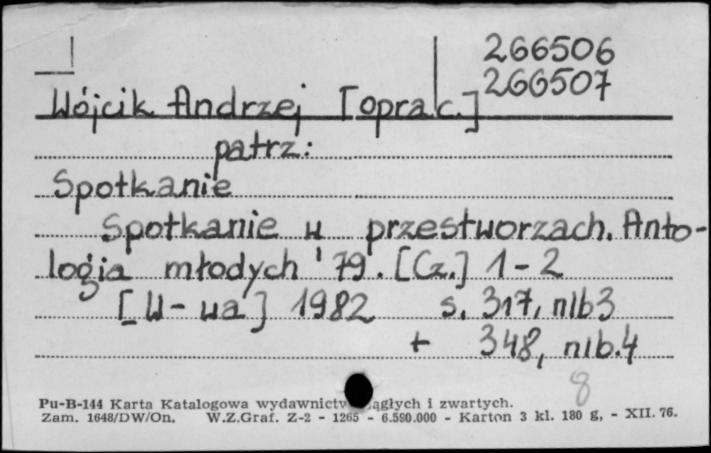 266506
266507
Wójcik Andrzej [oprac.]
patrz:
Spotkanie
Spotkanie w przestworzach. Anto-
logia młodych '79. [Cz.] 1-2
[W-wa] 1982 s. 317, nlb3
+ 348, nlb.4
8
Pu-B-144 Karta Katalogowa wydawnictw ągłych i zwartych.
Zam. 1648/DW/On. W.Z.Graf. Z-2 - 1265 - 6.590.000 - Karton 3 kl. 180 g. - XII. 76.